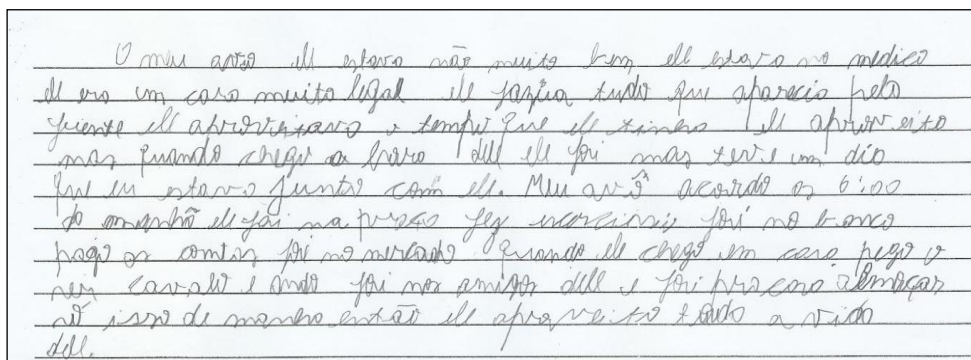 O meu avso ele estava não muito bem ele estava no medico
ele era um cara muito legal ele fazia tudo que aparecia pela
frente ele aproveitava o tempo que ele tinha ele aproveito
mas quando chego a hara dele ele foi mas teve um dia
que eu estava junto com ele. Meu avô acordo as 6:00
da manhã ele foi na praça fez foi no banco
pago as contas foi no mercado quando ele chego em casa pego o
seu cavalo e ando foi nos amigos dele e foi pra casa almoçar
só isso de manha então ele aproveito a vida
dele.